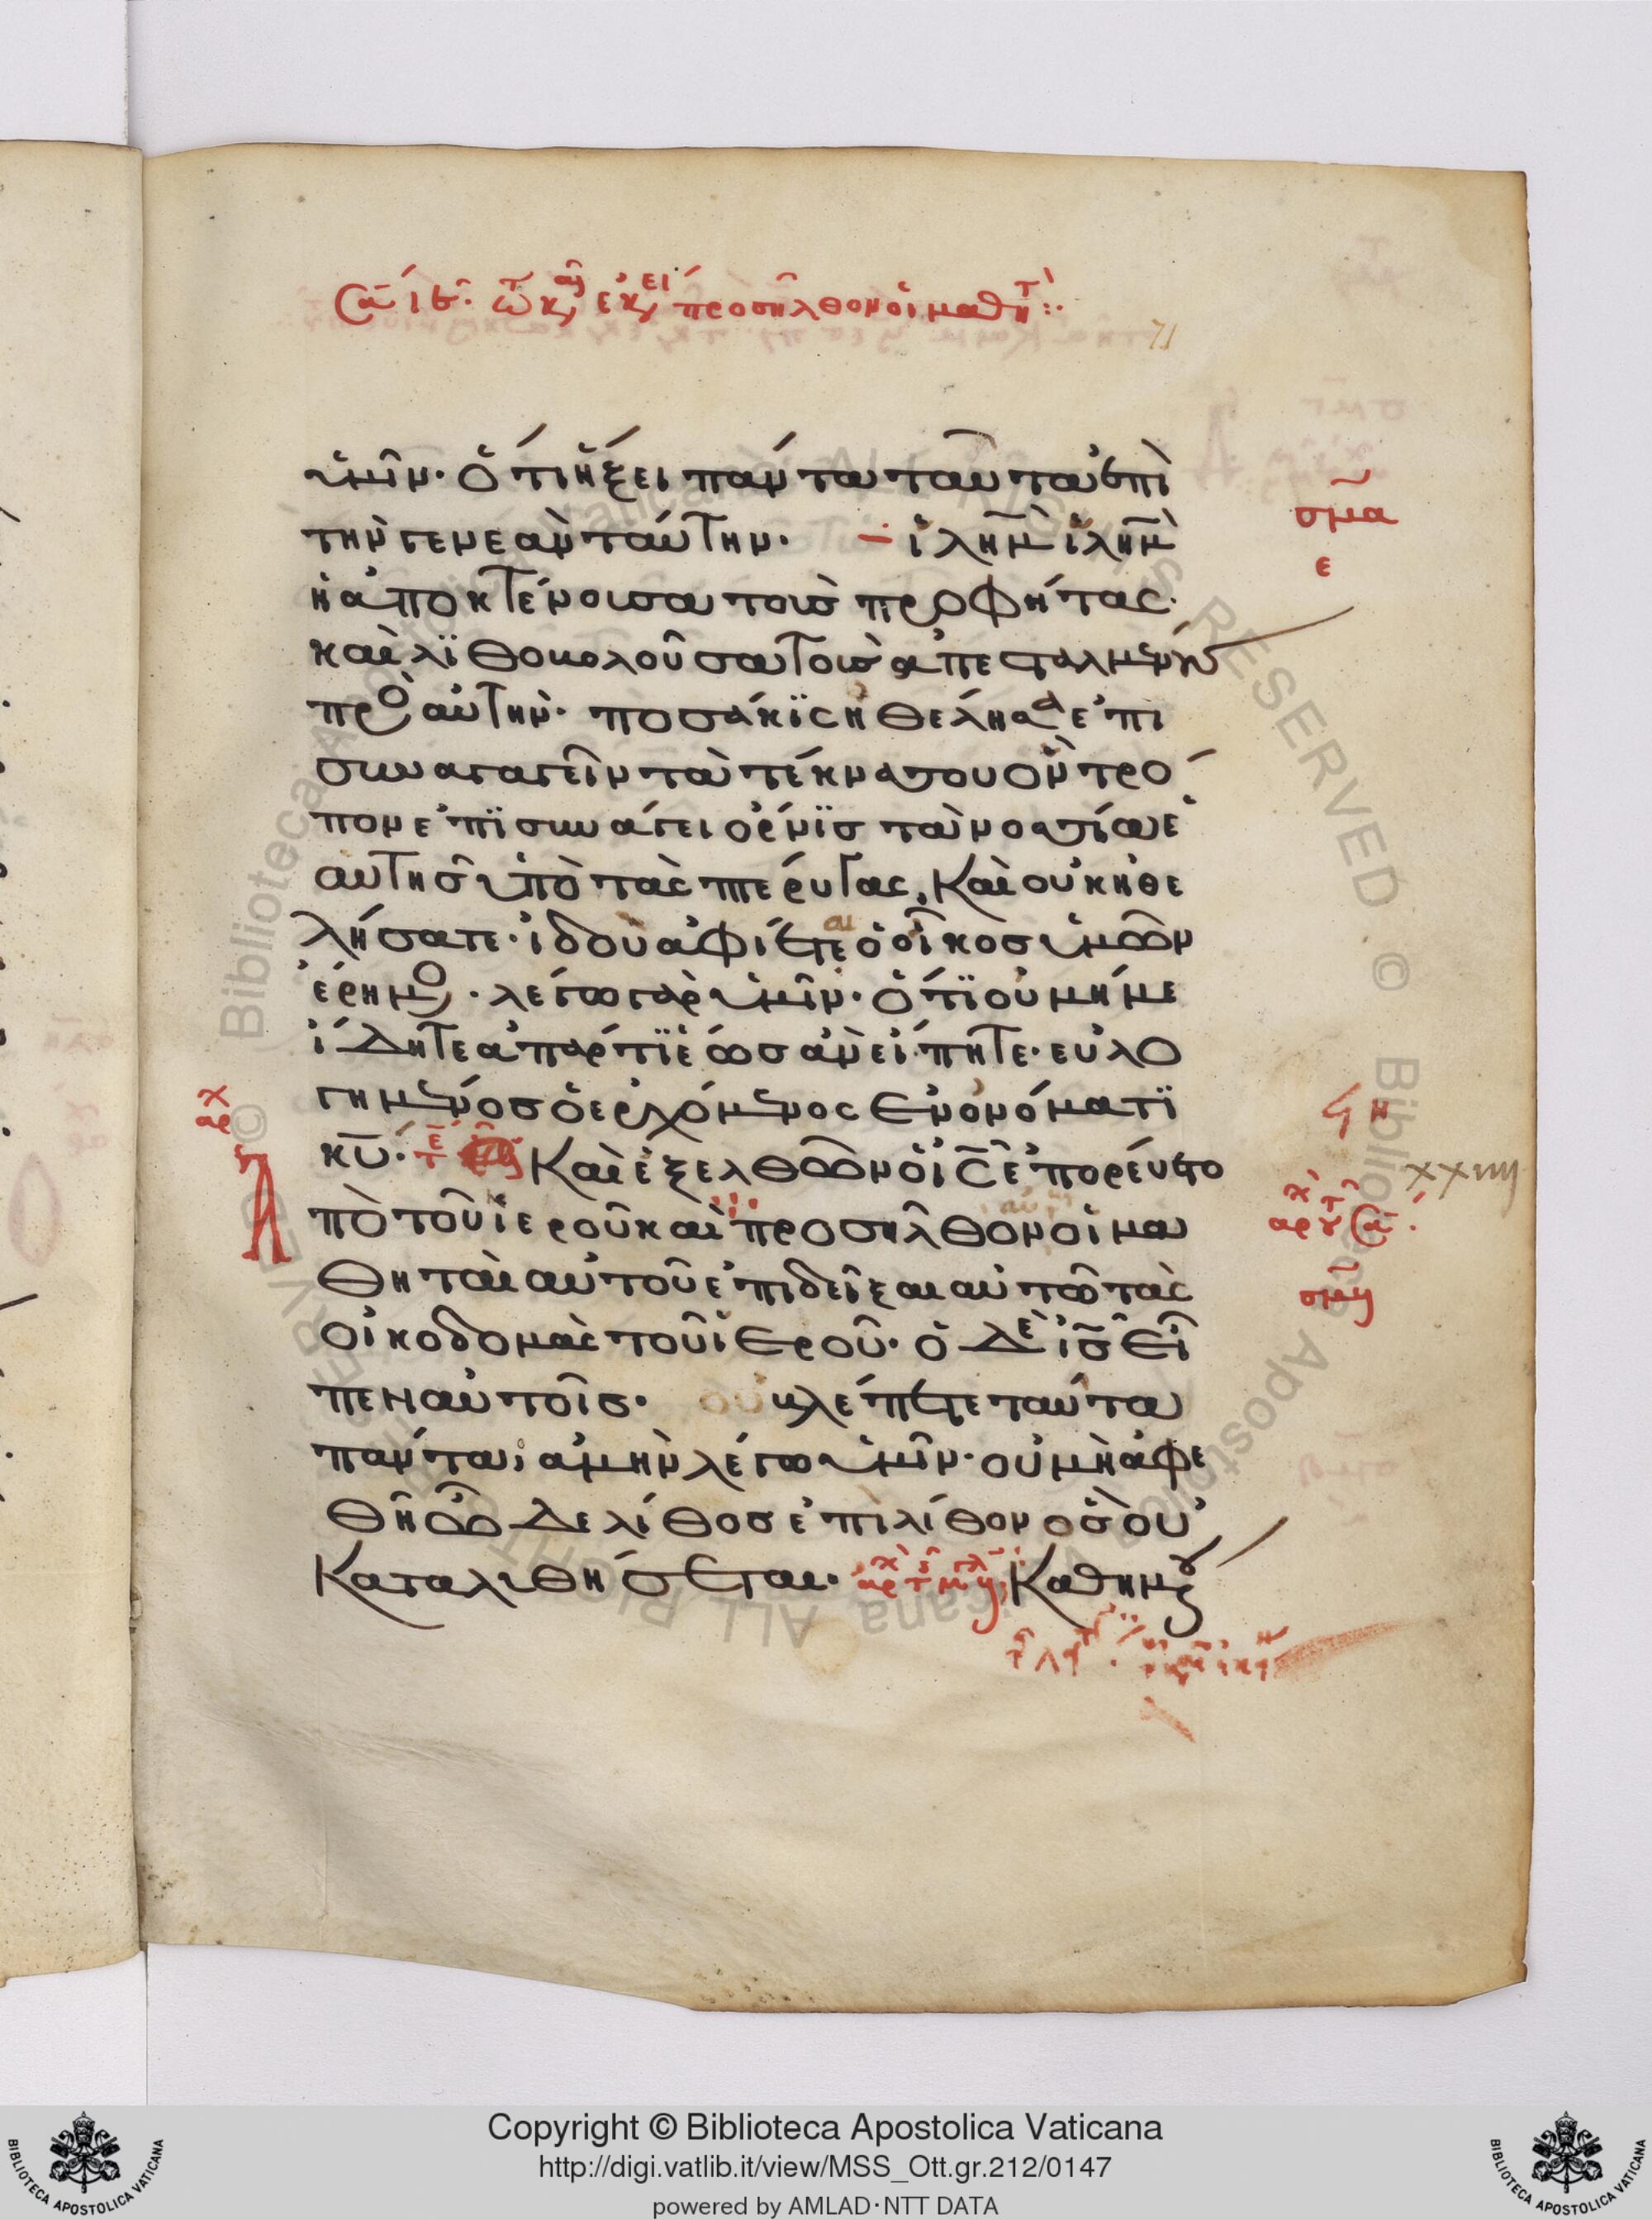 σα ιβ τω κ, εκει προσηλθον οι μαθητ
71
ὑμῖν· ὅτι ἥξει πάντα ταῦτα ἐπὶ
τὴν γενεὰν ταύτην· ἰλὴμ ἰλὴμ
ἡ ἀποκτένουσα τοὺς προφήτας·
καὶ λϊθοβολοῦσα τοὺς ἀπεσταλμένους
πρὸς αὐτήν· ποσάκϊς ἠθέλησα ἐπι
συναγαγεῖν τὰ τέκνα σου ὃν τρό
πον ἐπϊσυνάγει ὄρνϊς τὰ νοσία ἑ
αυτῆς ὑπὸ τὰς πτέρυγας, Καὶ οὐκ ἠθε
λήσατε· ἰδοὺ ἀφίεται ὁ οἶκος ὑμῶν
ἔρημος· λέγω γὰρ ὑμῖν· ὅτϊ οὐ μή με
ἴδητε ἀπάρτϊ ἕως ἂν εἴπητε· εὐλο
γημένος ὁ ἐρχόμενος ἐν ὀνόματϊ
κυ· Καὶ ἐξελθὼν ὁ ις ἐπορεύετο
ἀπὸ τοῦ ἱεροῦ καὶ προσῆλθον οἱ μα
θηταὶ αὐτοῦ ἐπιδεῖξαι αὐτῷ τὰς
οἰκοδομὰς τοῦ ἱεροῦ· ὁ δὲ ις εἶ
πεν αὐτοῖς· οὐ βλέπετε ταῦτα
πάντα; ἀμὴν λέγω ὑμῖν· οὐ μὴ ἀφε
θῇ ὧδε λίθος ἐπὶ λίθον ὃς οὐ
Καταλυθήσεται· Καθημένου
σμα
ε
αρχ
ϟ η
xxiiii
σμβ
Copyright © Biblioteca Apostolica Vaticana
http://digi.vatlib.it/view/MSS_Ott.gr.212/0147
powered by AMLAD·NTT DATA
BIBLIOTECA APOSTOLICA VATICANA
BIBLIOTECA APOSTOLICA VATICANA